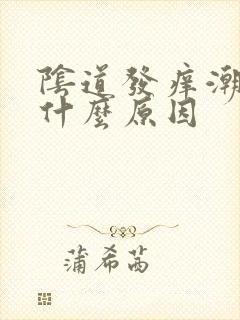 陰道發癢潮
什麼原因
蒲希茜